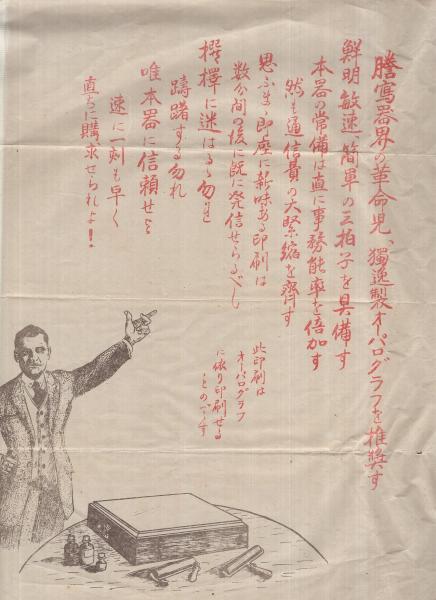 謄寫器界の革命児、獨逸製オーパログラフを推奬す
鮮明、敏速、簡單の三拍子を具備す
本器の常備は直に事務能率を倍加す
然も通信費の大緊縮を齎す
思ふまゝ即座に新味ある印刷は
数分間の後に既に発信せらるべし
撰擇に迷はるゝ勿れ
躊躇する勿れ
唯本器に信頼せよ
速に一刻も早く
直ちに購求せられよ!
此印刷は
オーパログラフ
に依り印刷せる
ものです